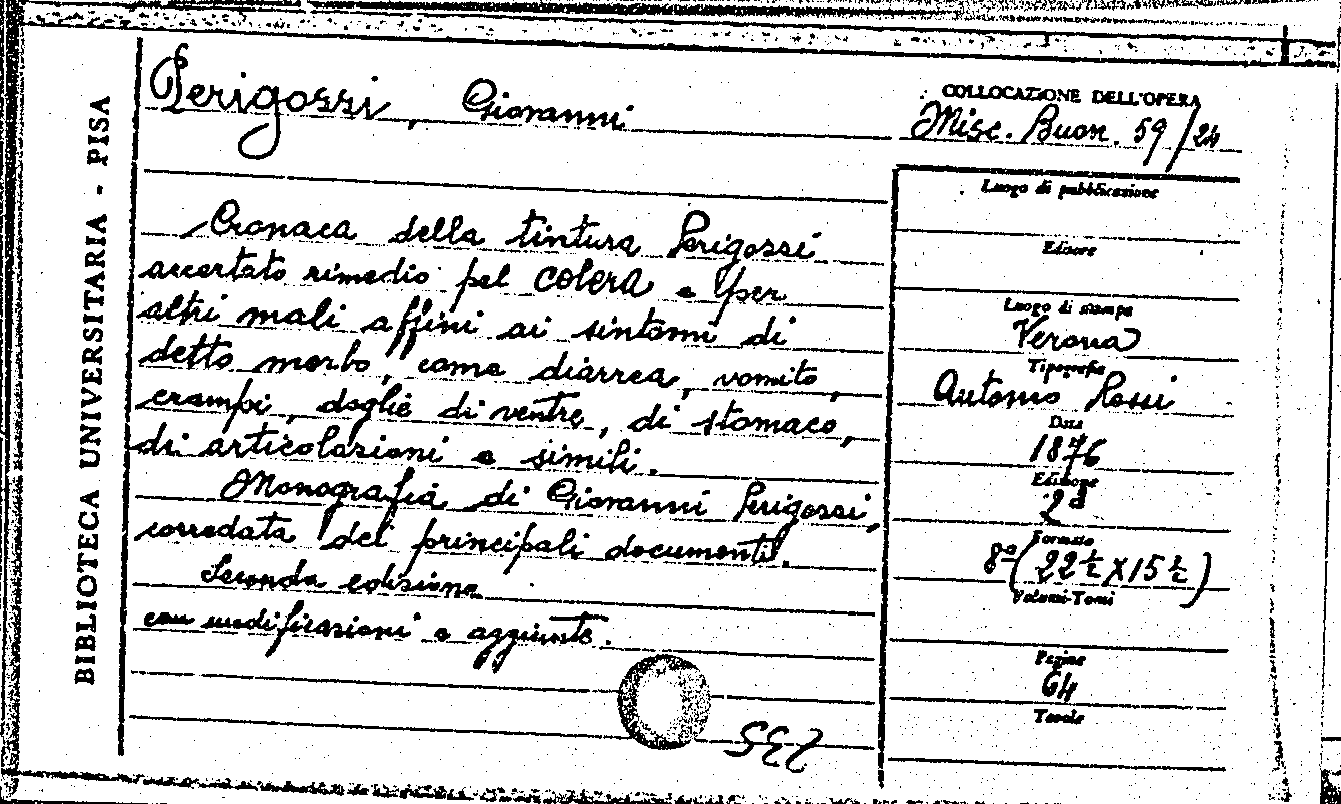 BIBLIOTECA UNIVERSITARIA - PISA
Perigozzi, Giovanni
COLLOCAZIONE DELL'OPERA
Misc. Buon. 59/24
Cronaca della tintura Perigozzi
accertato rimedio pel colera e per
altri mali affini ai sintomi di
detto morbo, come diarrea, vomito,
crampi, doglie di ventre, di stomaco,
di articolazioni e simili.
Monografia di Giovanni Perigozzi,
corredata dei principali documenti.
Seconda edizione
con modificazioni e aggiunte.
Luogo di pubblicazione
Editore
Luogo di stampa
Verona
Tipografia
Antonio Rossi
Data
1876
Edizione
2ª
Formato
8º (22½ X 15½)
Volumi-Tomi
Pagine
64
Tavole
235